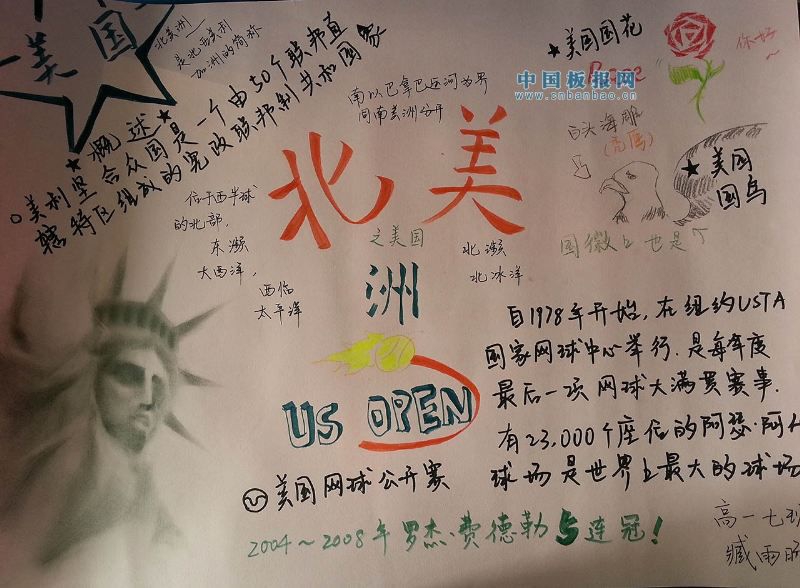 美国
北美洲
是北亚美利
加洲的简称
★概述★
美利坚合众国是一个由50个联邦直
辖特区组成的宪政联邦制共和国家
南以巴拿巴运河为界
同南美洲分开
★美国国花
Rose
你好~
中国板报网
www.cnbanbao.cn
白头海雕
(秃鹰)
★美国
国鸟
国徽上也是
北美
之美国
洲
位于西半球
的北部,
东濒
大西洋,
西临
太平洋
北濒
北冰洋
US OPEN
美国网球公开赛
自1978年开始,在纽约USTA
国家网球中心举行.是每年度
最后一项网球大满贯赛事.
有23,000个座位的阿瑟·阿什
球场是世界上最大的球场
2004~2008年罗杰·费德勒5连冠!
高一七班
臧雨